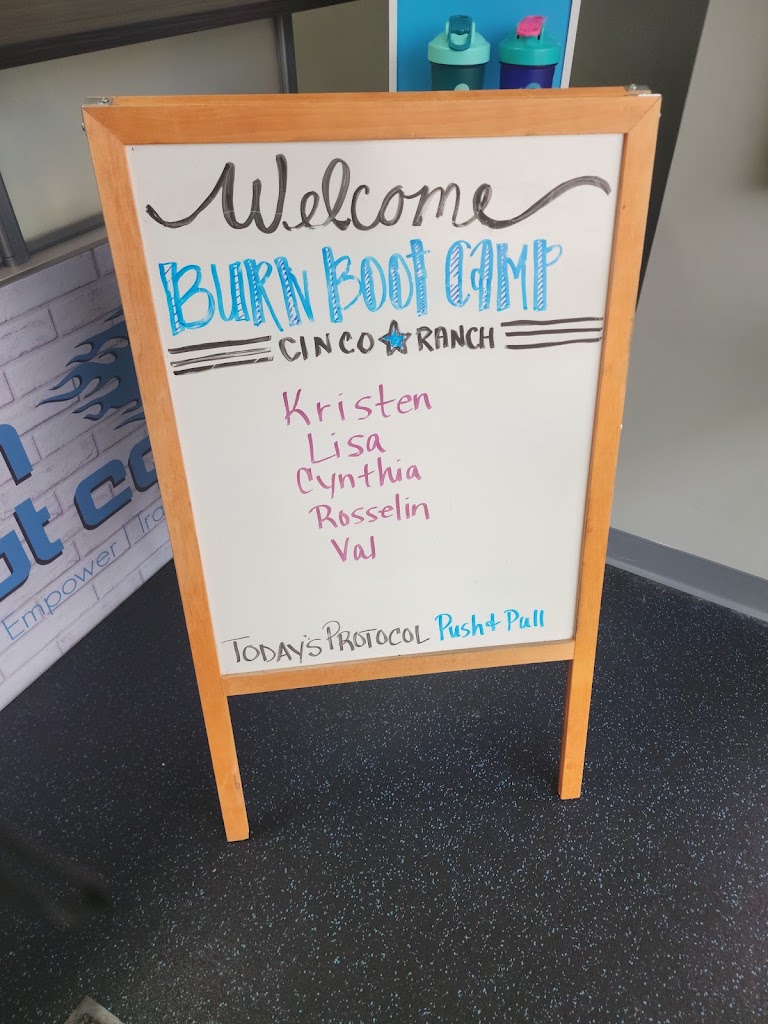 Welcome
BURN BOOT CAMP
CINCO RANCH
Kristen
Lisa
Cynthia
Rosselin
Val
TODAY'S PROTOCOL Push & Pull
Empower |